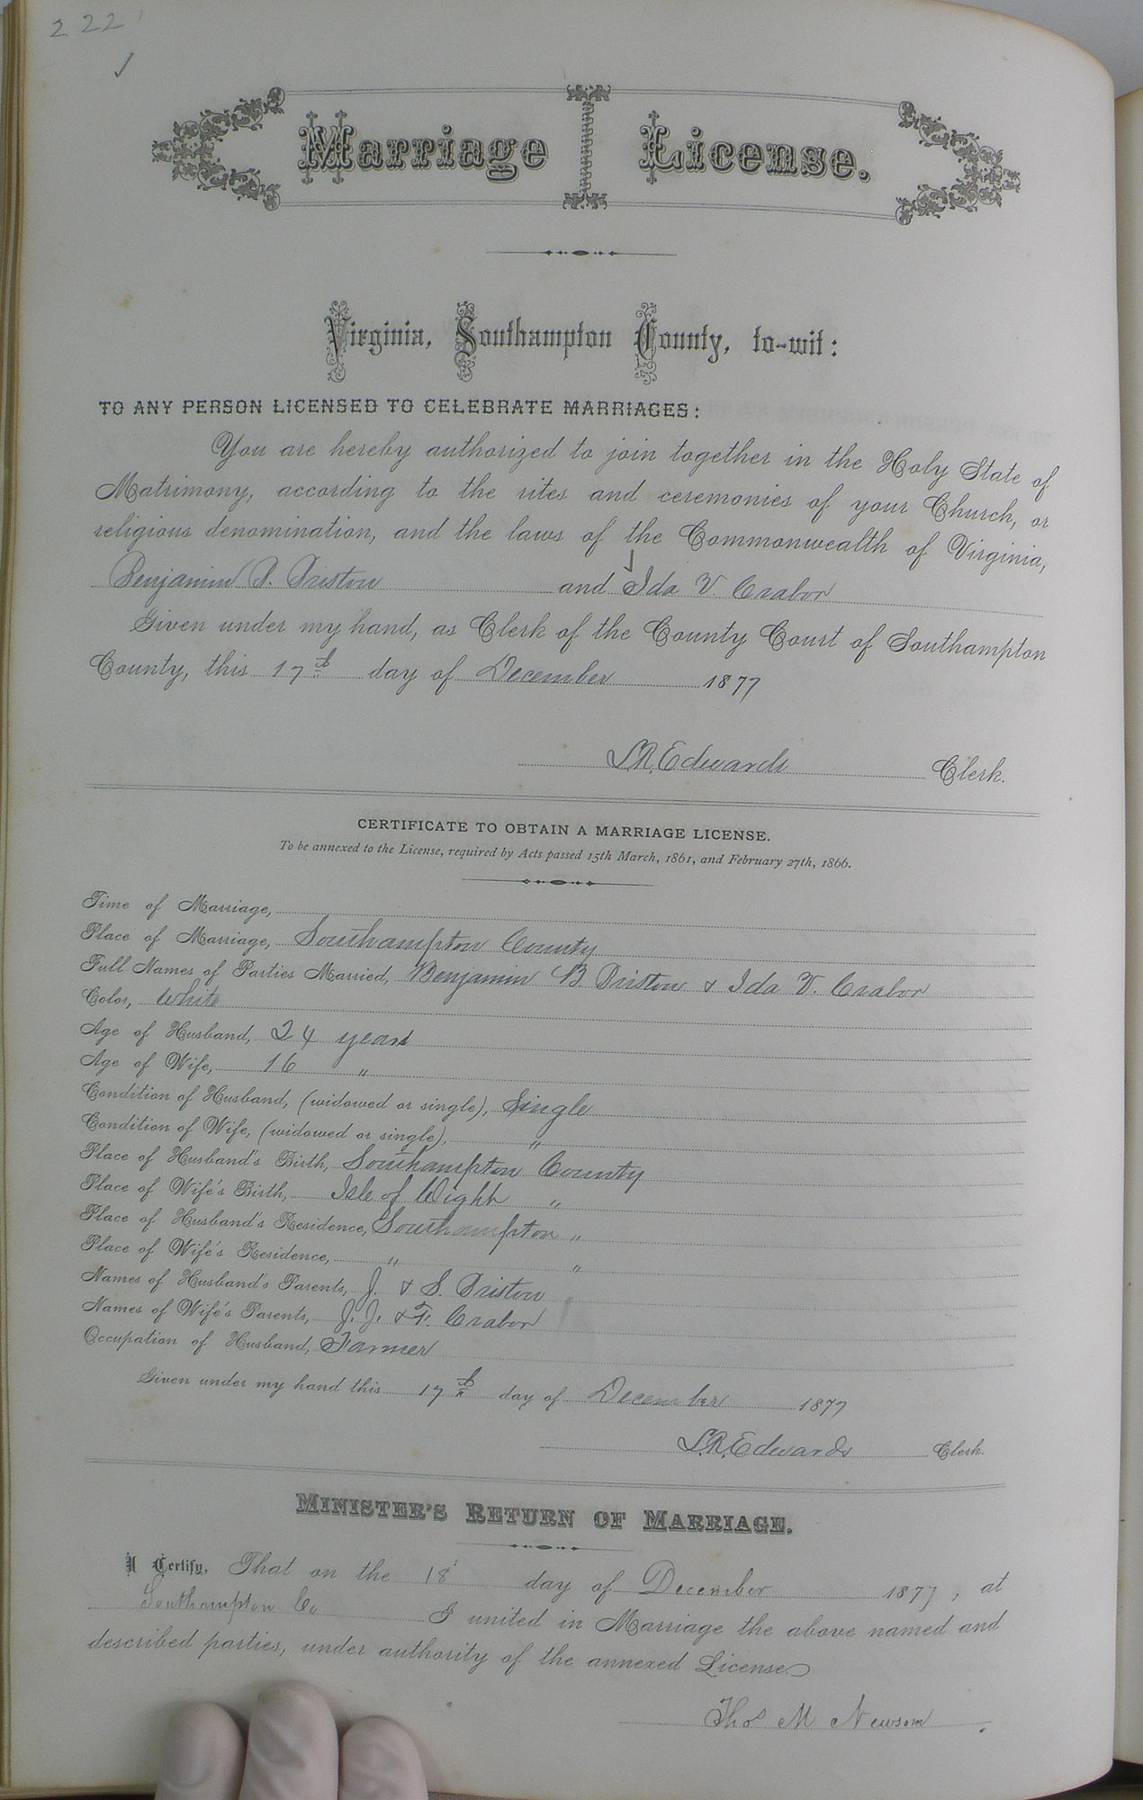 222
Marriage License.
Virginia, Southampton County, to-wit:
TO ANY PERSON LICENSED TO CELEBRATE MARRIAGES:
You are hereby authorized to join together in the Holy State of
Matrimony, according to the rites and ceremonies of your Church, or
religious denomination, and the laws of the Commonwealth of Virginia,
Benjamin B. Driston and Ida V. Crabor
Given under my hand, as Clerk of the County Court of Southampton
County, this 17th day of December 1877
L.R. Edwards Clerk.
CERTIFICATE TO OBTAIN A MARRIAGE LICENSE.
To be annexed to the License, required by Acts passed 15th March, 1861, and February 27th, 1866.
Time of Marriage,
Place of Marriage, Southampton County
Full Names of Parties Married, Benjamin B Driston & Ida V. Crabor
Color, White
Age of Husband, 24 years
Age of Wife, 16 "
Condition of Husband, (widowed or single), Single
Condition of Wife, (widowed or single), "
Place of Husband's Birth, Southampton County
Place of Wife's Birth, Isle of Wight "
Place of Husband's Residence, Southampton "
Place of Wife's Residence, " "
Names of Husband's Parents, J. & S. Driston
Names of Wife's Parents, J. J. & F. Crabor
Occupation of Husband, Farmer
Given under my hand this 17th day of December 1877
L.R. Edwards Clerk.
MINISTER'S RETURN OF MARRIAGE.
I Certify, That on the 18 day of December 1877, at
Southampton Co I united in Marriage the above named and
described parties, under authority of the annexed License
Thos M Newsom